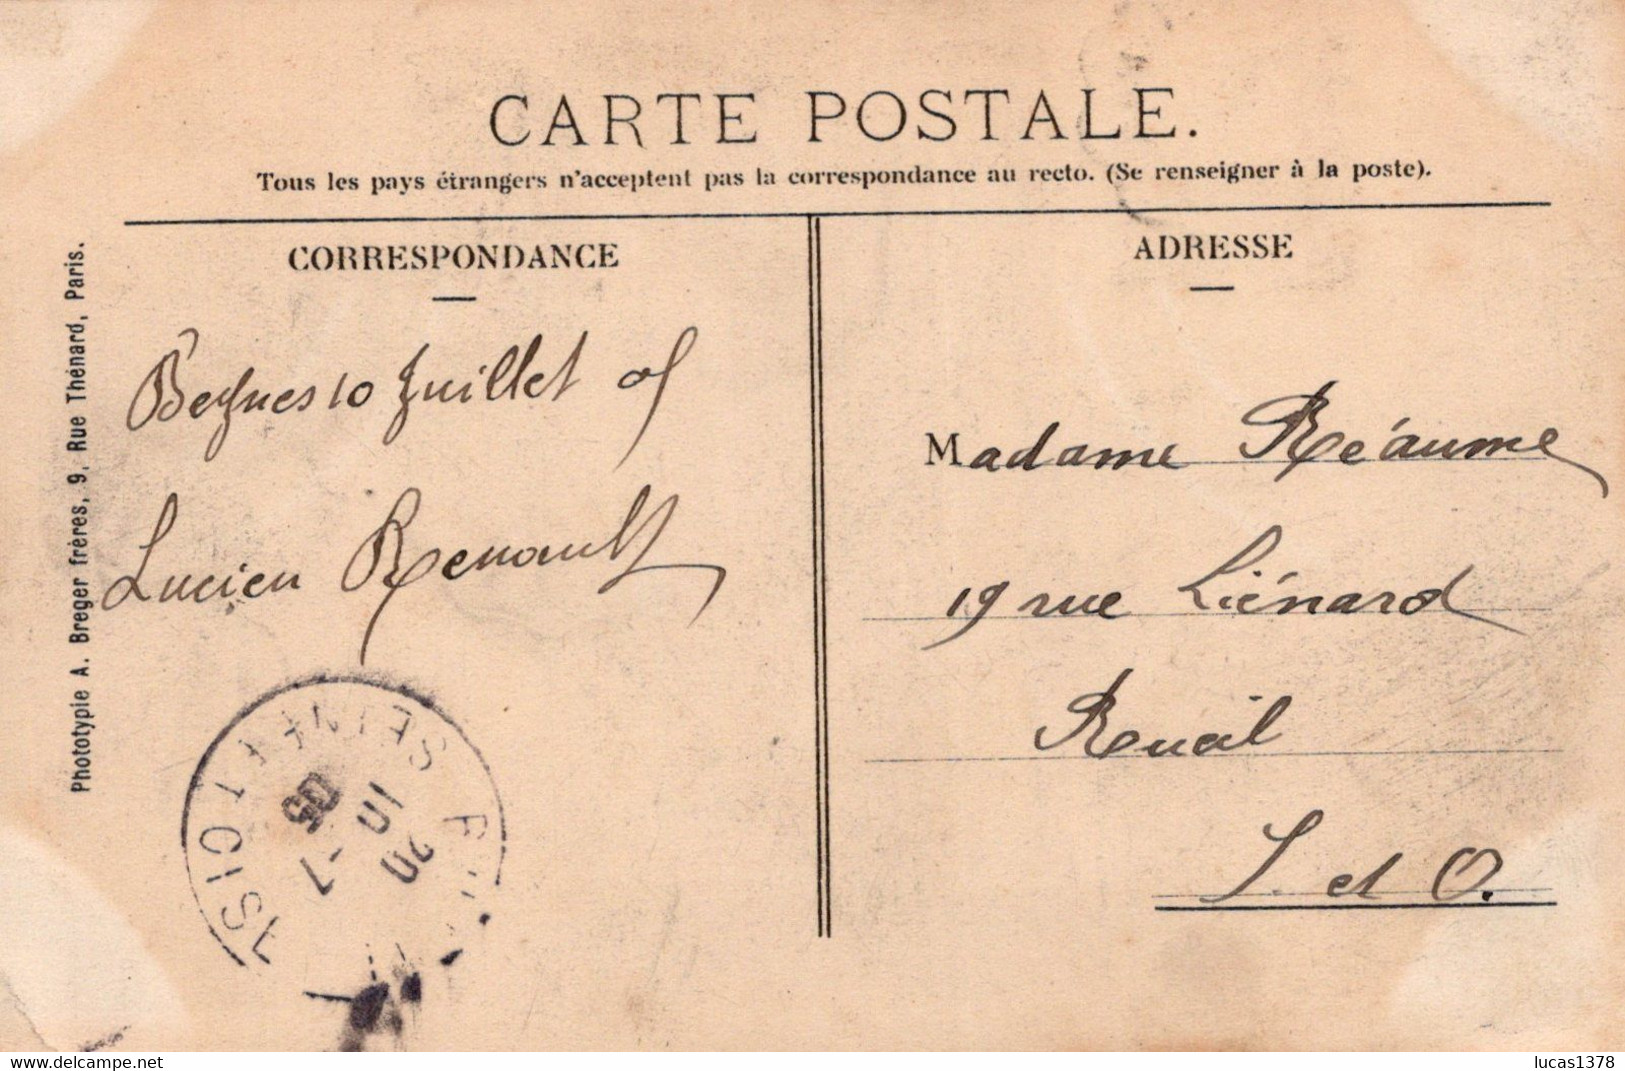 CARTE POSTALE.
Tous les pays étrangers n'acceptent pas la correspondance au recto. (Se renseigner à la poste).
CORRESPONDANCE
Beynes 10 Juillet 05
Lucien Renault
ADRESSE
Madame Réaume
19 rue Liénard
Rueil
S. et O.
Phototypie A. Breger frères, 9, Rue Thénard, Paris.
SEINE ET OISE
10 -7
05
lucas1378